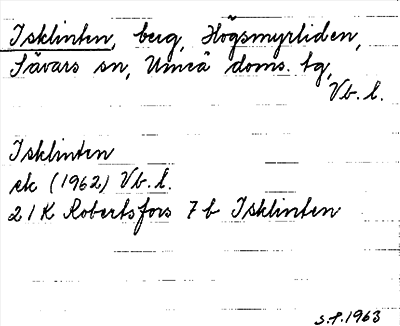 Isklinten, berg, Högsmyrliden,
Sävars sn, Umeå doms. tg,
Vb. l.
Isklinten
ek (1962) Vb. l.
21K Robertsfors 7b Isklinten
S.P. 1963